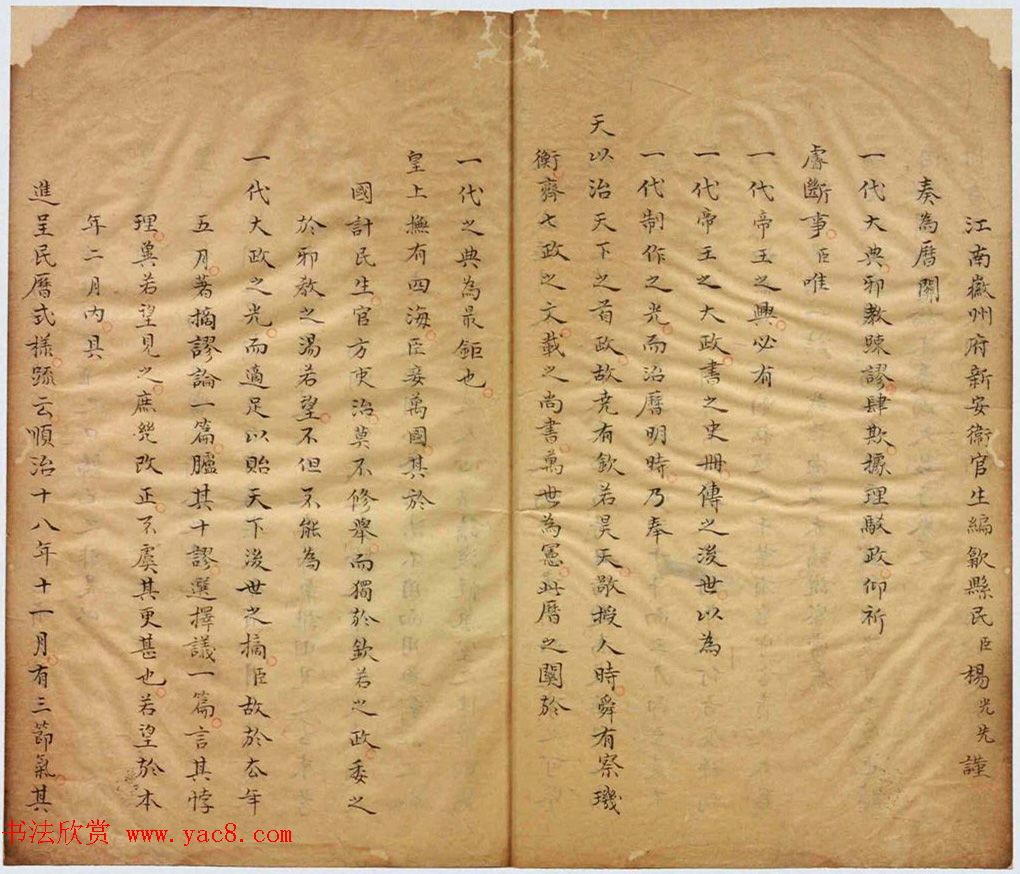 江南徽州府新安衛官生編歙縣民臣楊光先謹
奏為曆關
一代大典邪教踈謬肆欺據理駁政仰祈
睿斷事臣唯
一代帝王之興必有
一代帝王之大政書之史冊傳之後世以為
一代制作之光而治曆明時乃奉
天以治天下之首政故堯有欽若昊天敬授人時舜有察璣
衡齊七政之文載之尚書萬世為憲此曆之關於
一代之典為最鉅也
皇上撫有四海臣妾萬國其於
國計民生官方吏治莫不修舉而獨於欽若之政委之
於邪教之湯若望不但不能為
一代大政之光而適足以貽天下後世之摘臣故於去年
五月著摘謬論一篇臚其十謬選擇議一篇言其悖
理冀若望見之庶幾改正不虞其更甚也若望於本
年二月內具
進呈民曆式樣踈云順治十八年十一月有三節氣其
书法欣赏 www.yac8.com